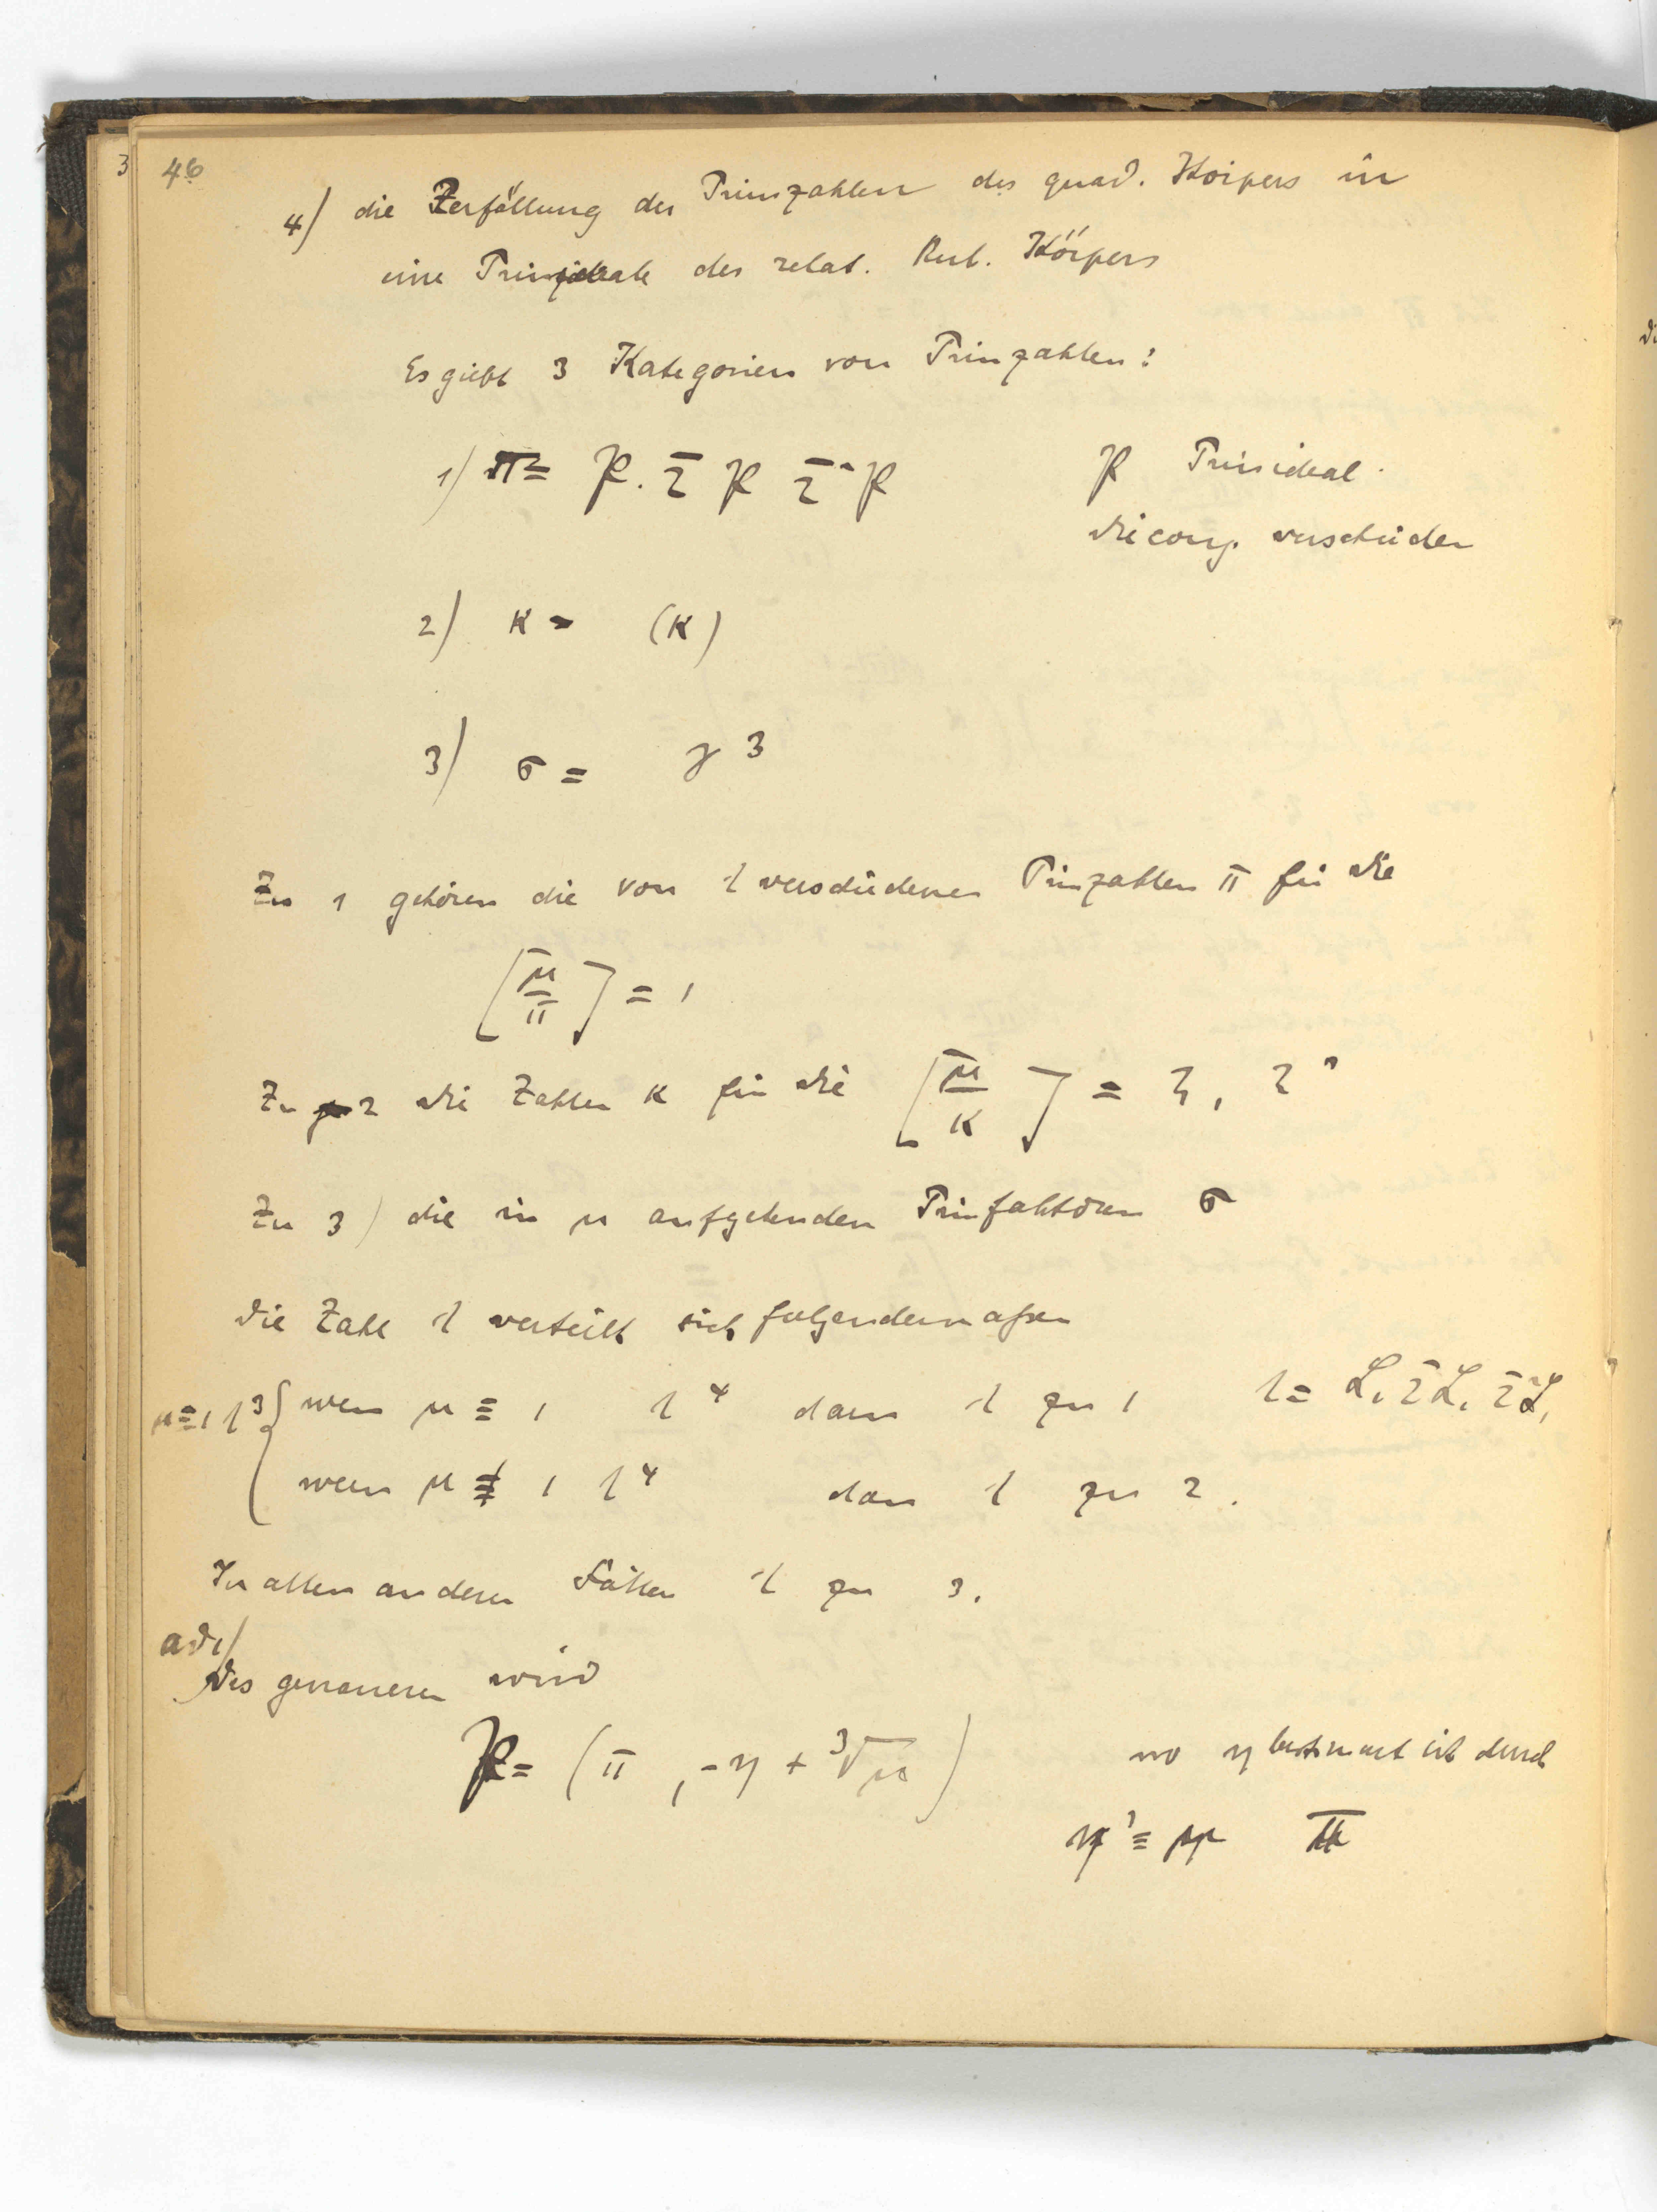 3
46
4) die Zerfällung der Primzahlen des quad. Körpers in
eine Primideale des relat. Kub. Körpers
Es giebt 3 Kategorien von Primzahlen:
1) π = 𝔓. Σ 𝔓 Σ² 𝔓 𝔓 Primideal.
die conj. verschieden
2) κ = (κ)
3) σ = 𝔶 3
Zu 1 gehören die von λ verschiedenen Primzahlen π für die
[μ/π] = 1
Zu 2 die Zahlen κ für die [μ/κ] = ζ, ζ²
Zu 3) die in μ aufgehenden Primfaktoren σ
Die Zahl λ verteilt sich folgendermaßen
μ ≡ 1 λ³ { wenn μ ≡ 1 λ⁴ dann λ zu 1 λ = 𝔏, Σ𝔏, Σ²𝔏,
wenn μ ≢ 1 λ⁴ dann λ zu 2.
In allen anderen Fällen λ zu 3.
ad 1)
Des genaueren wird
𝔓 = (π, -η + ³√μ) wo η bestimmt ist durch
η³ ≡ μ π